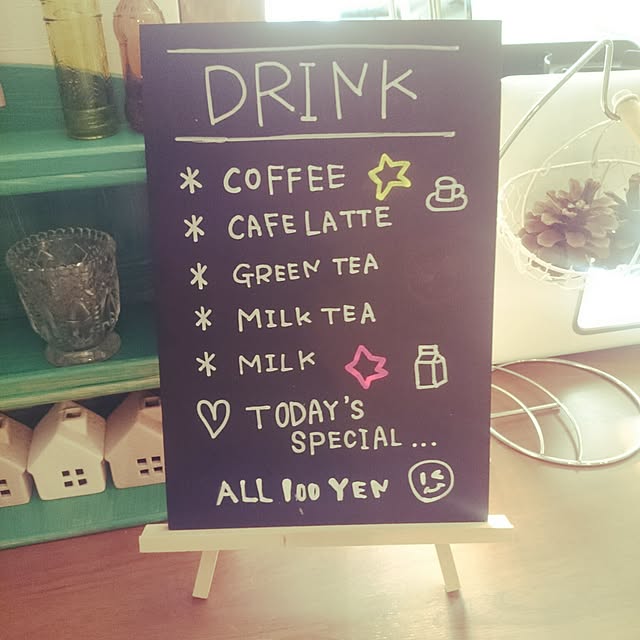 DRINK
* COFFEE
* CAFE LATTE
* GREEN TEA
* MILK TEA
* MILK
♡ TODAY'S
SPECIAL...
ALL 100 YEN